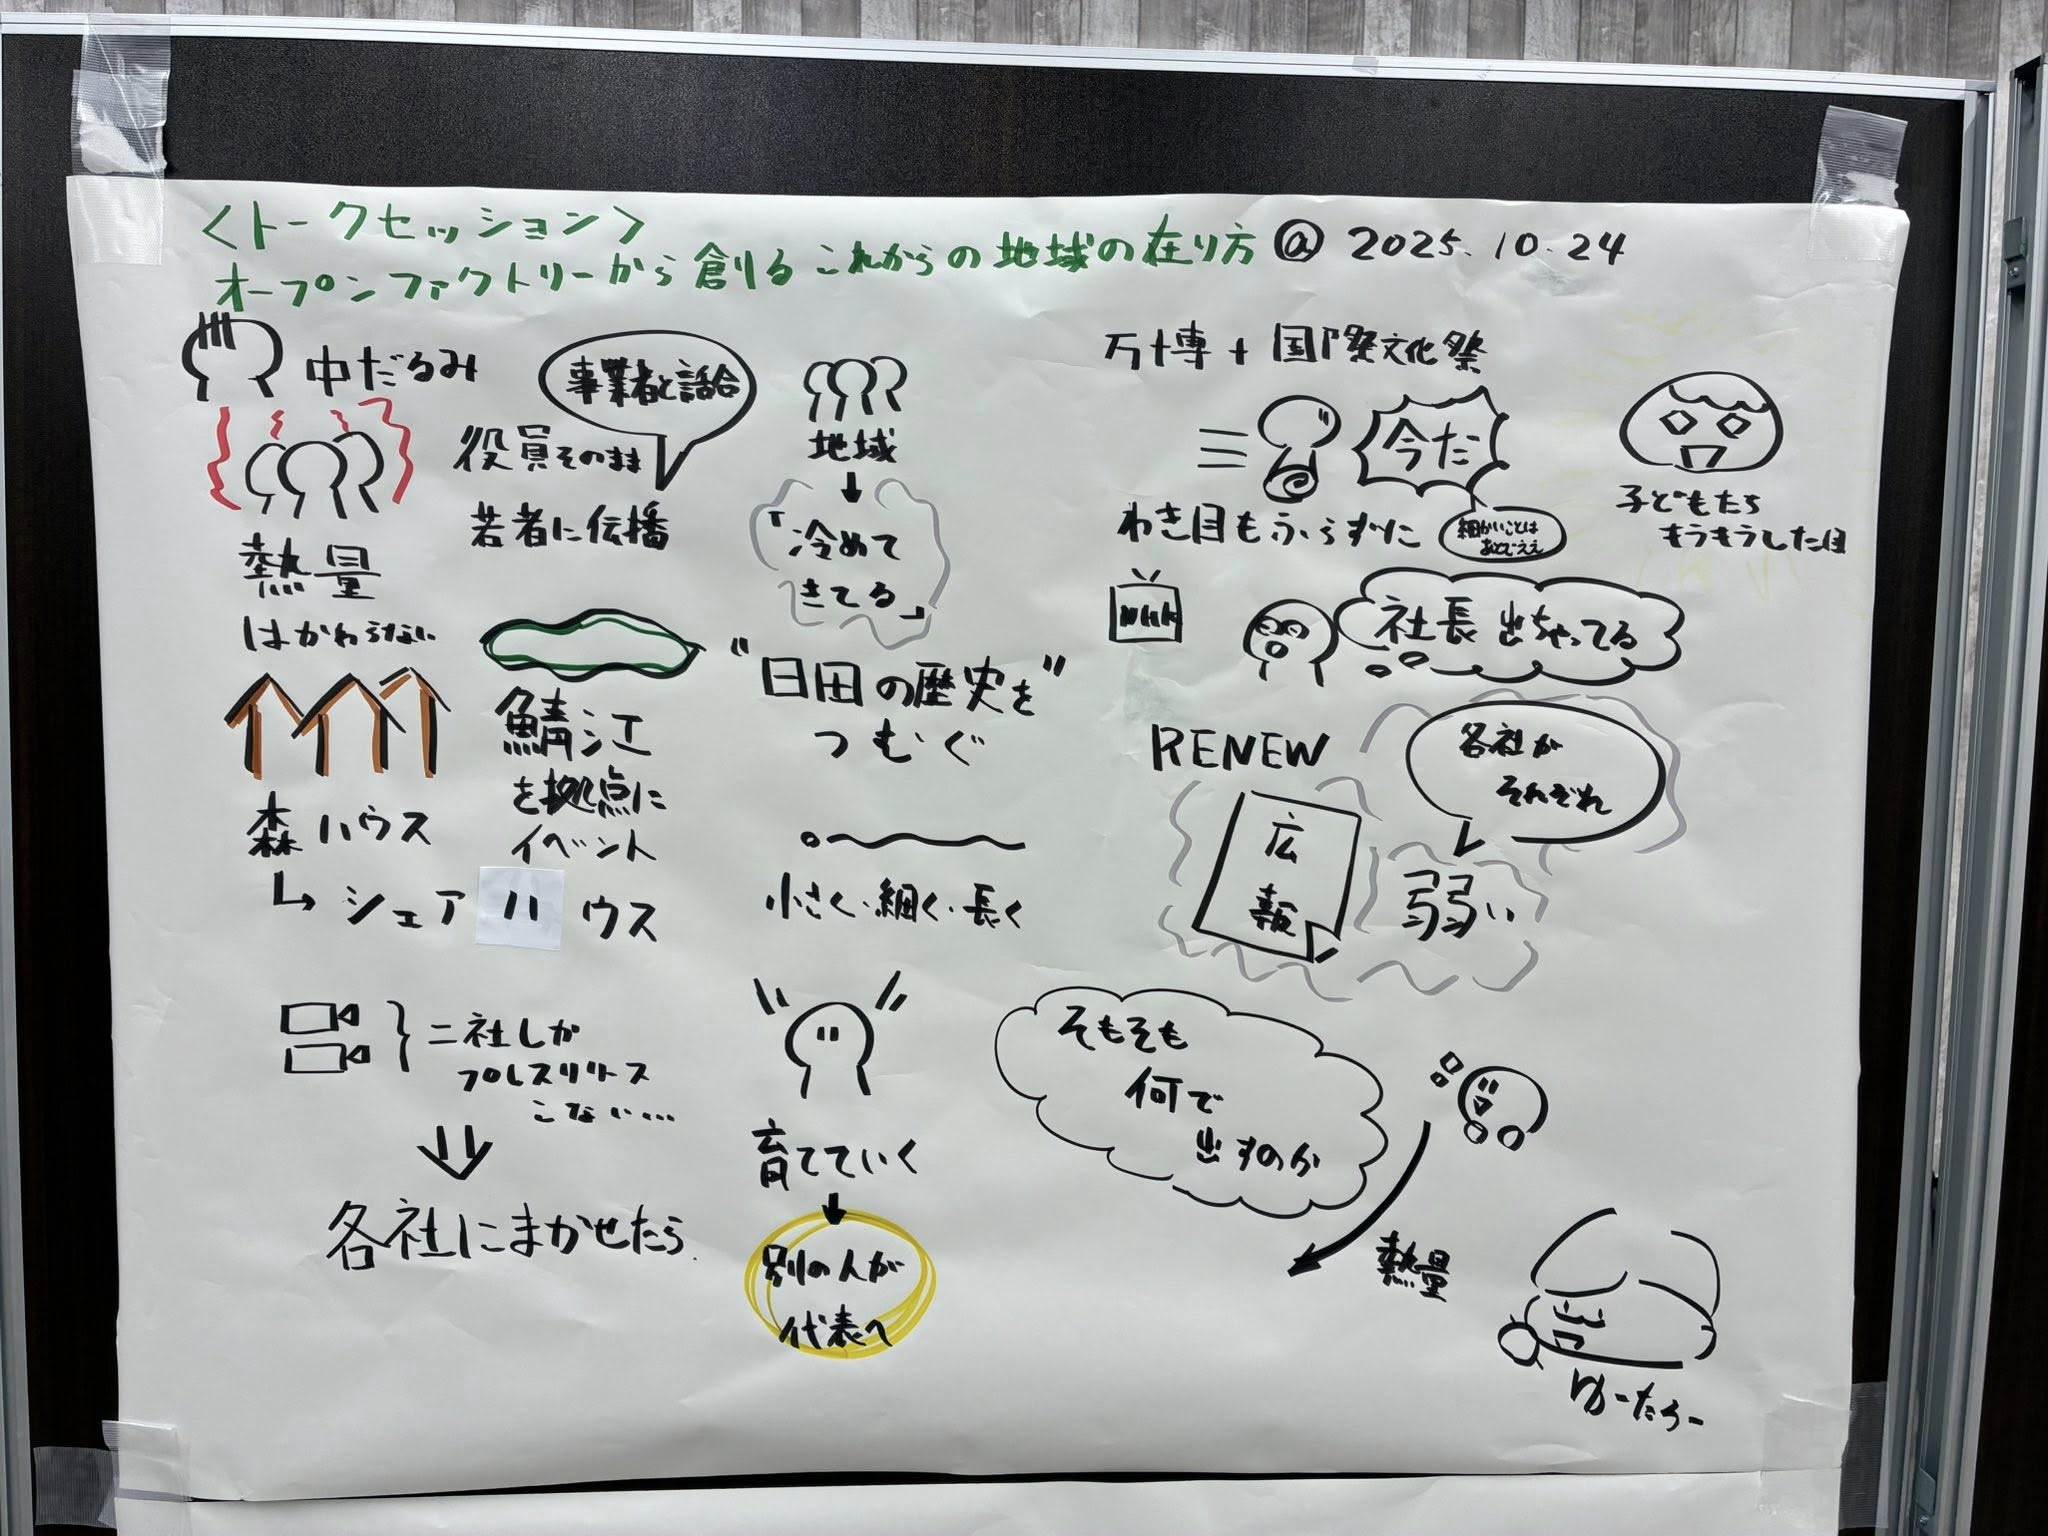 ＜トークセッション＞
オープンファクトリーから創りるこれからの地域の在り方 @ 2025.10.24
中だるみ
熱量
はかわらない
事業者と話合
役員そのまま
若者に伝播
森ハウス
↳ シェアハウス
鯖江
を拠点に
イベント
二社しか
プレスリリース
こない…
各社にまかせたら
地域
「冷めて
きてる」
"日田の歴史を"
つむぐ
小さく・細く・長く
育てていく
別の人が
代表へ
万博+国際文化祭
今だ
わき目もふらずに
細かいことは
あとでええ
子どもたち
もうもうした目
NHK
社長 出ちゃってる
RENEW
各社が
それぞれ
広報
弱い
そもそも
何で
出すのか
熱量
ゆーたろー